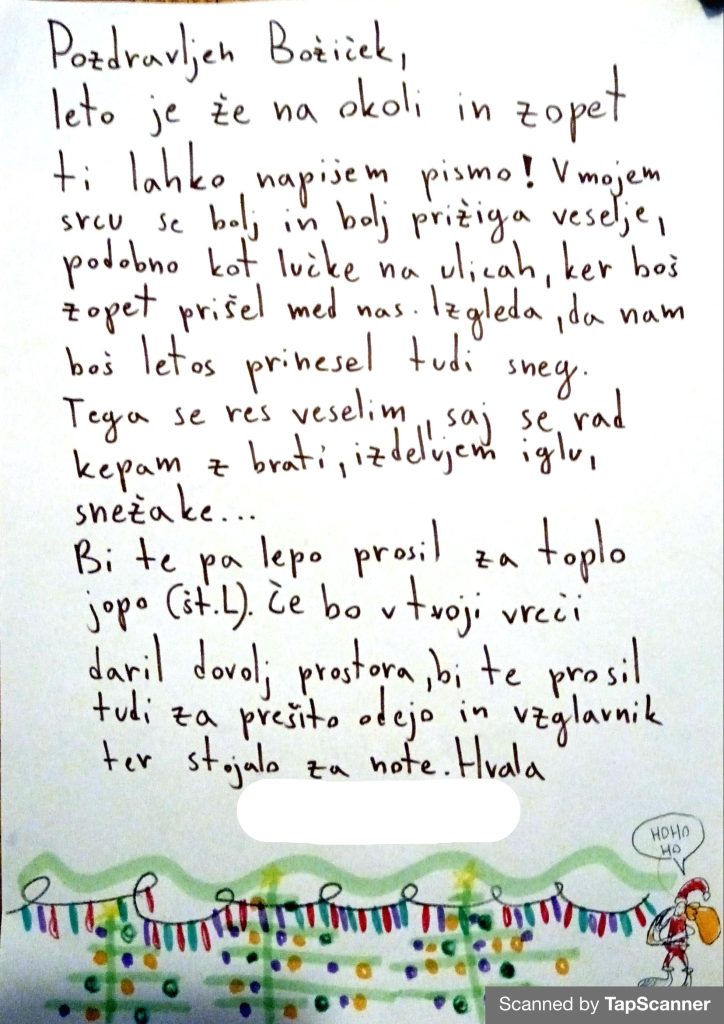 Pozdravljen Božiček,
leto je že na okoli in zopet
ti lahko napišem pismo! V mojem
srcu se bolj in bolj prižiga veselje,
podobno kot lučke na ulicah, ker boš
zopet prišel med nas. Izgleda, da nam
boš letos prinesel tudi sneg.
Tega se res veselim, saj se rad
kepam z brati, izdelujem iglu,
snežake...
Bi te pa lepo prosil za toplo
jopo (št.L). Če bo v tvoji vreči
daril dovolj prostora, bi te prosil
tudi za prešito odejo in vzglavnik
ter stojalo za note. Hvala
HOHO
HO
Scanned by TapScanner